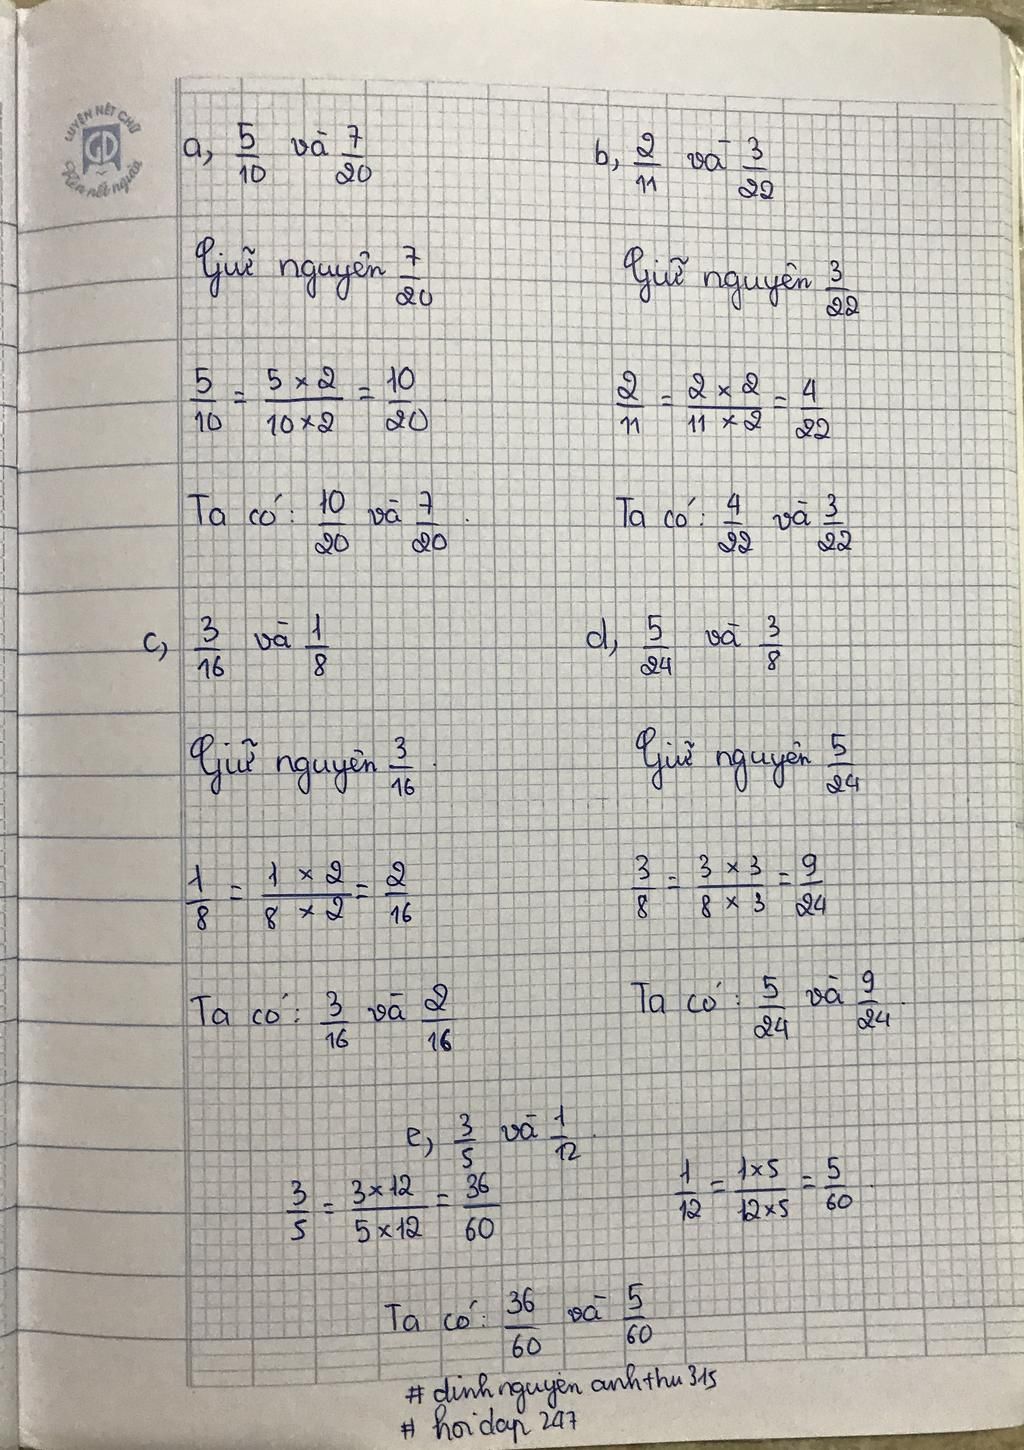 LUYỆN NÉT CHỮ
GD
Rèn nết người
a, 5/10 và 7/20
Giữ nguyên 7/20
5/10 = 5 × 2/10 × 2 = 10/20
Ta có: 10/20 và 7/20.
b, 2/11 và 3/22
Giữ nguyên 3/22
2/11 = 2 × 2/11 × 2 = 4/22
Ta có: 4/22 và 3/22
c, 3/16 và 1/8
Giữ nguyên 3/16.
1/8 = 1 × 2/8 × 2 = 2/16
Ta có: 3/16 và 2/16
d, 5/24 và 3/8
Giữ nguyên 5/24
3/8 = 3 × 3/8 × 3 = 9/24
Ta có: 5/24 và 9/24.
e, 3/5 và 1/12.
3/5 = 3 × 12/5 × 12 = 36/60
1/12 = 1 × 5/12 × 5 = 5/60.
Ta có: 36/60 và 5/60
# dinhnguyenanhthu315
# hoidap247